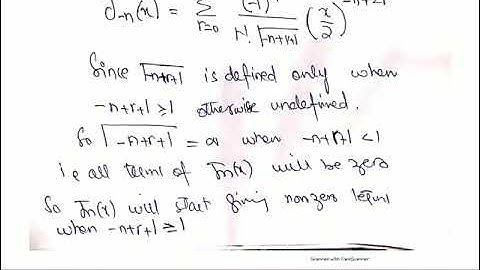 J-n(x) = Σ r=0 (-1)^r / r! Γ-n+r+1 (x/2)^-n+2r
Since Γ-n+r+1 is defined only when
-n+r+1 ≥ 1 otherwise undefined.
So Γ-n+r+1 = ∞ when -n+r+1 < 1
i.e all terms of Jn(x) will be zero
So Jn(x) will start giving nonzero terms
when -n+r+1 ≥ 1
Scanned with CamScanner